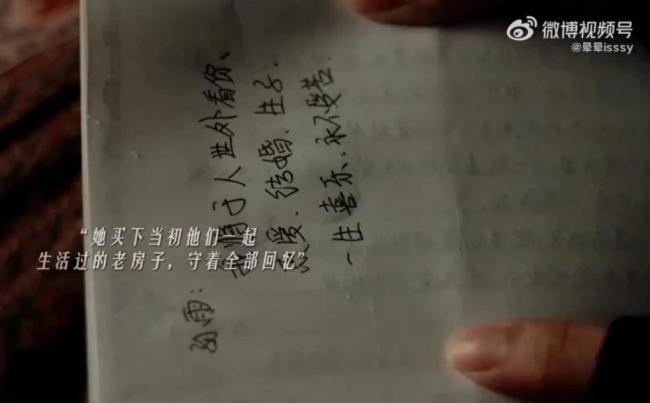 微博视频号
@晕晕isssy
“她买下当初他们一起
生活过的老房子，守着全部回忆”
雨：
将于人世外看你、
爱、结婚、生子、
一生喜乐、永不受苦.